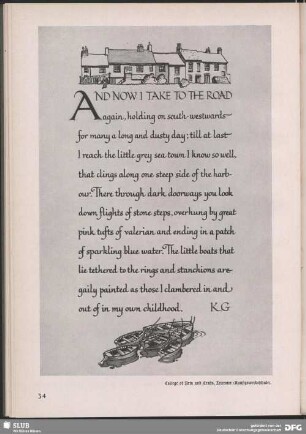 AND NOW I TAKE TO THE ROAD
again, holding on south-westwards
for many a long and dusty day: till at last
I reach the little grey sea town I know so well,
that clings along one steep side of the harb-
our. There through dark doorways you look
down flights of stone steps, overhung by great
pink tufts of valerian and ending in a patch
of sparkling blue water. The little boats that
lie tethered to the rings and stanchions are
gaily painted as those I clambered in and
out of in my own childhood. K.G
College of
34
SLUB
DFG